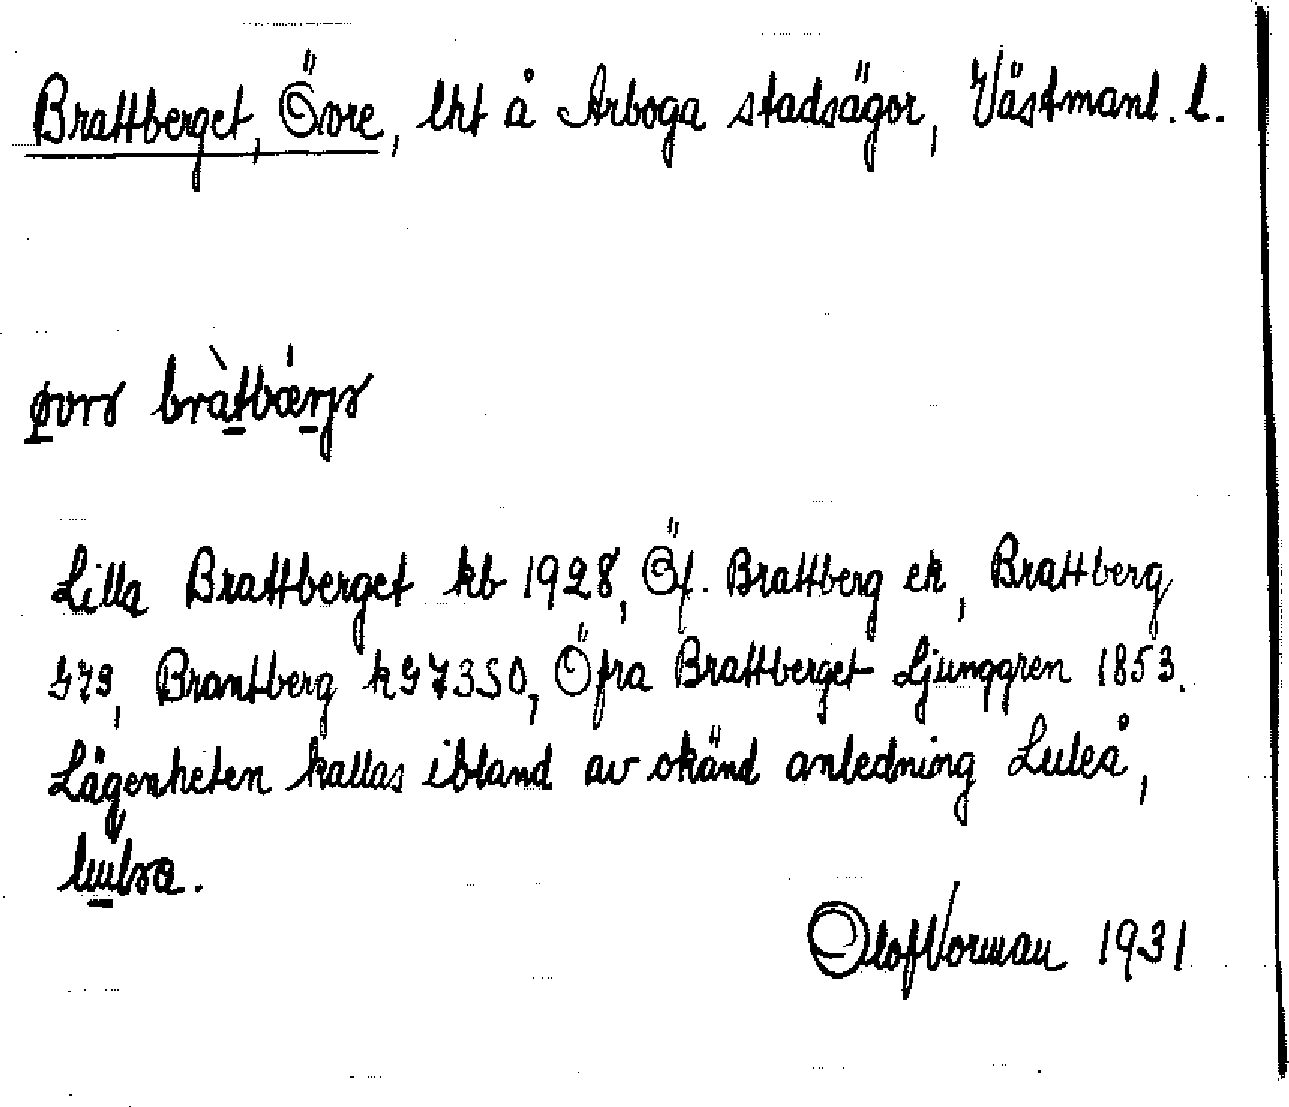 Brattberget, Övre, lht å Arboga stadsägor, Västmanl. l.
Lilla Brattberget kb 1928, Öf. Brattberg ek, Brattberg
G79, Brantberg kG7350, Öfra Brattberget Ljunggren 1853.
Lägenheten kallas ibland av okänd anledning Luleå,
Olof Vorman 1931